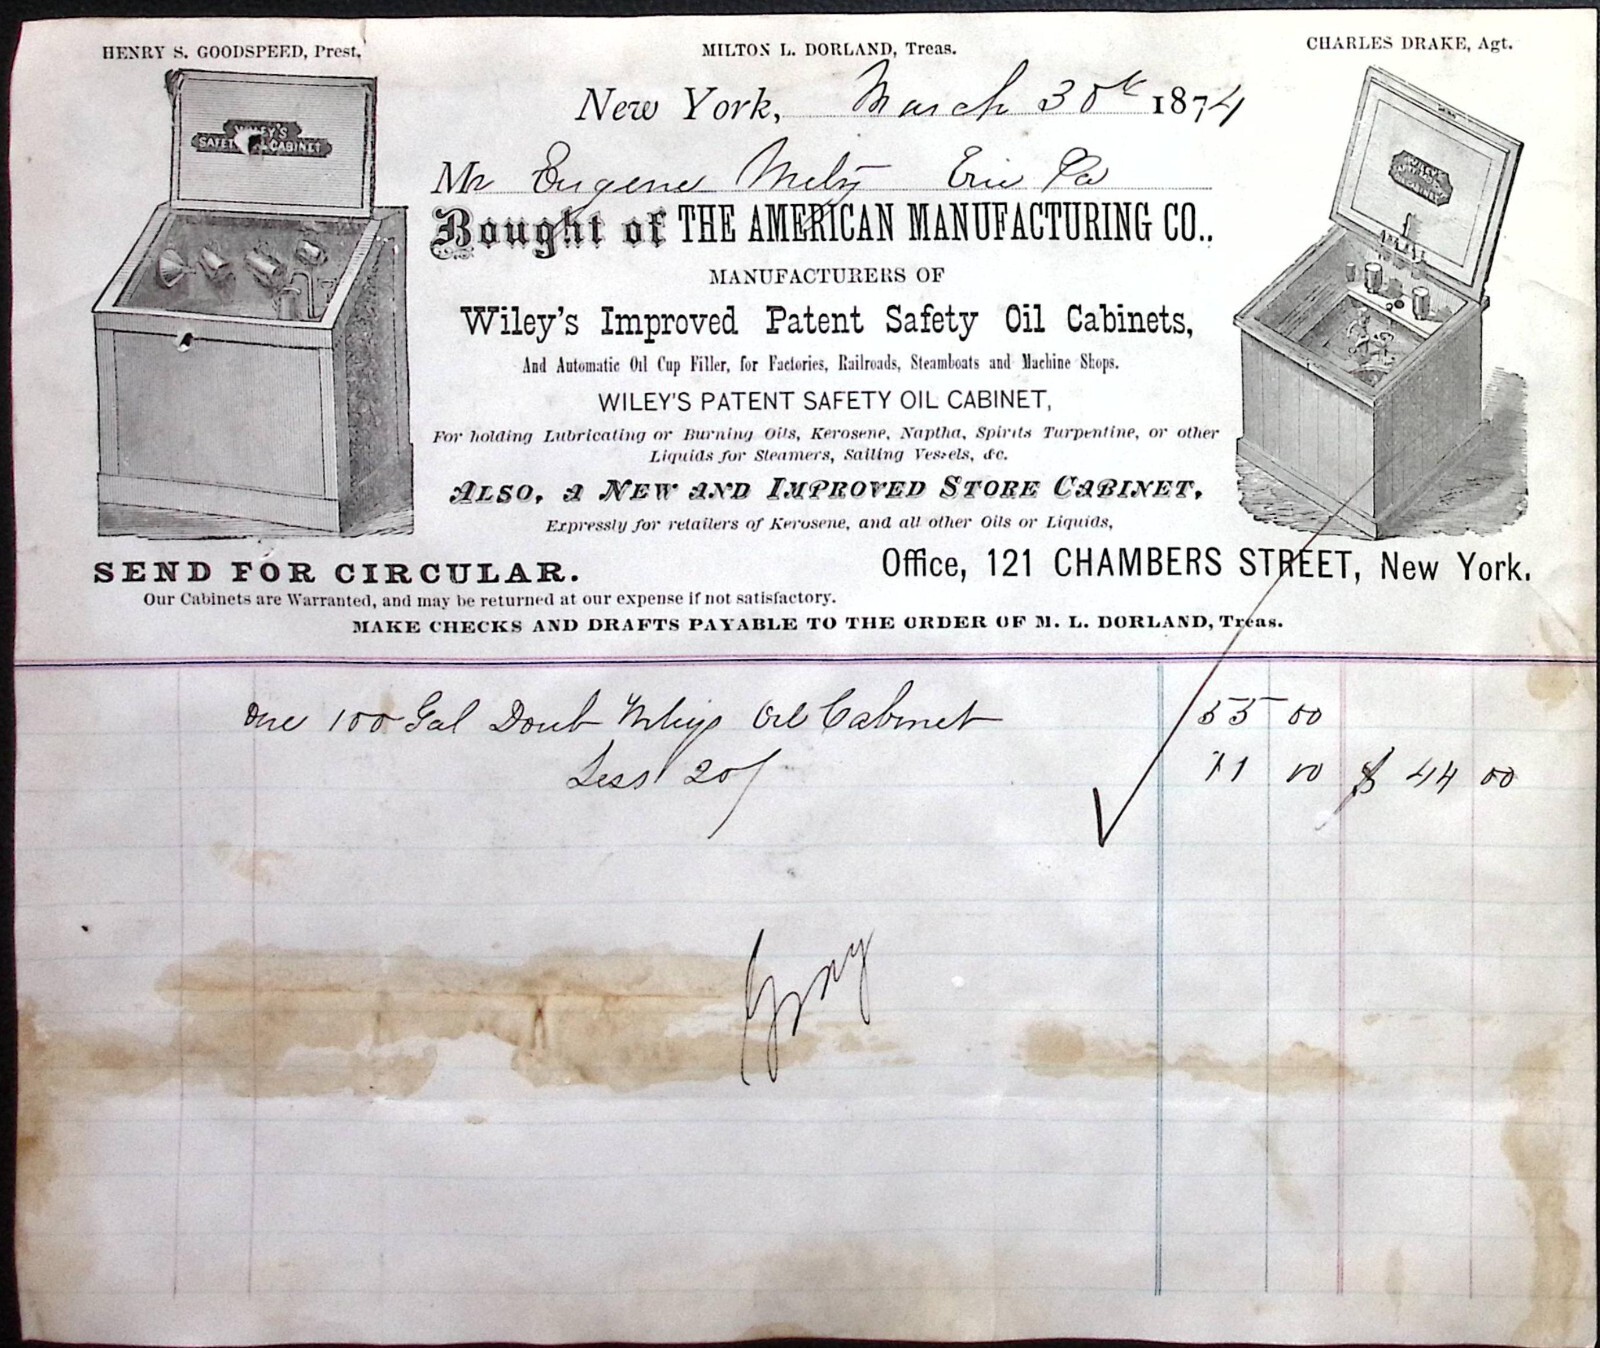 HENRY S. GOODSPEED, Prest.
MILTON L. DORLAND, Treas.
CHARLES DRAKE, Agt.
WILEY'S
SAFETY OIL CABINET
New York, March 30th 1874
Mr Eugene Erie Pa
Bought of THE AMERICAN MANUFACTURING CO.,
MANUFACTURERS OF
Wiley's Improved Patent Safety Oil Cabinets,
And Automatic Oil Cup Filler, for Factories, Railroads, Steamboats and Machine Shops.
WILEY'S PATENT SAFETY OIL CABINET,
For holding Lubricating or Burning Oils, Kerosene, Naptha, Spirits Turpentine, or other
Liquids for Steamers, Sailing Vessels, &c.
ALSO, A NEW AND IMPROVED STORE CABINET,
Expressly for retailers of Kerosene, and all other Oils or Liquids,
SEND FOR CIRCULAR.
Office, 121 CHAMBERS STREET, New York.
Our Cabinets are Warranted, and may be returned at our expense if not satisfactory.
MAKE CHECKS AND DRAFTS PAYABLE TO THE ORDER OF M. L. DORLAND, Treas.
One 100 Gal Doub Wileys Oil Cabinet 55 00
Less 20/ 11 00 $ 44 00